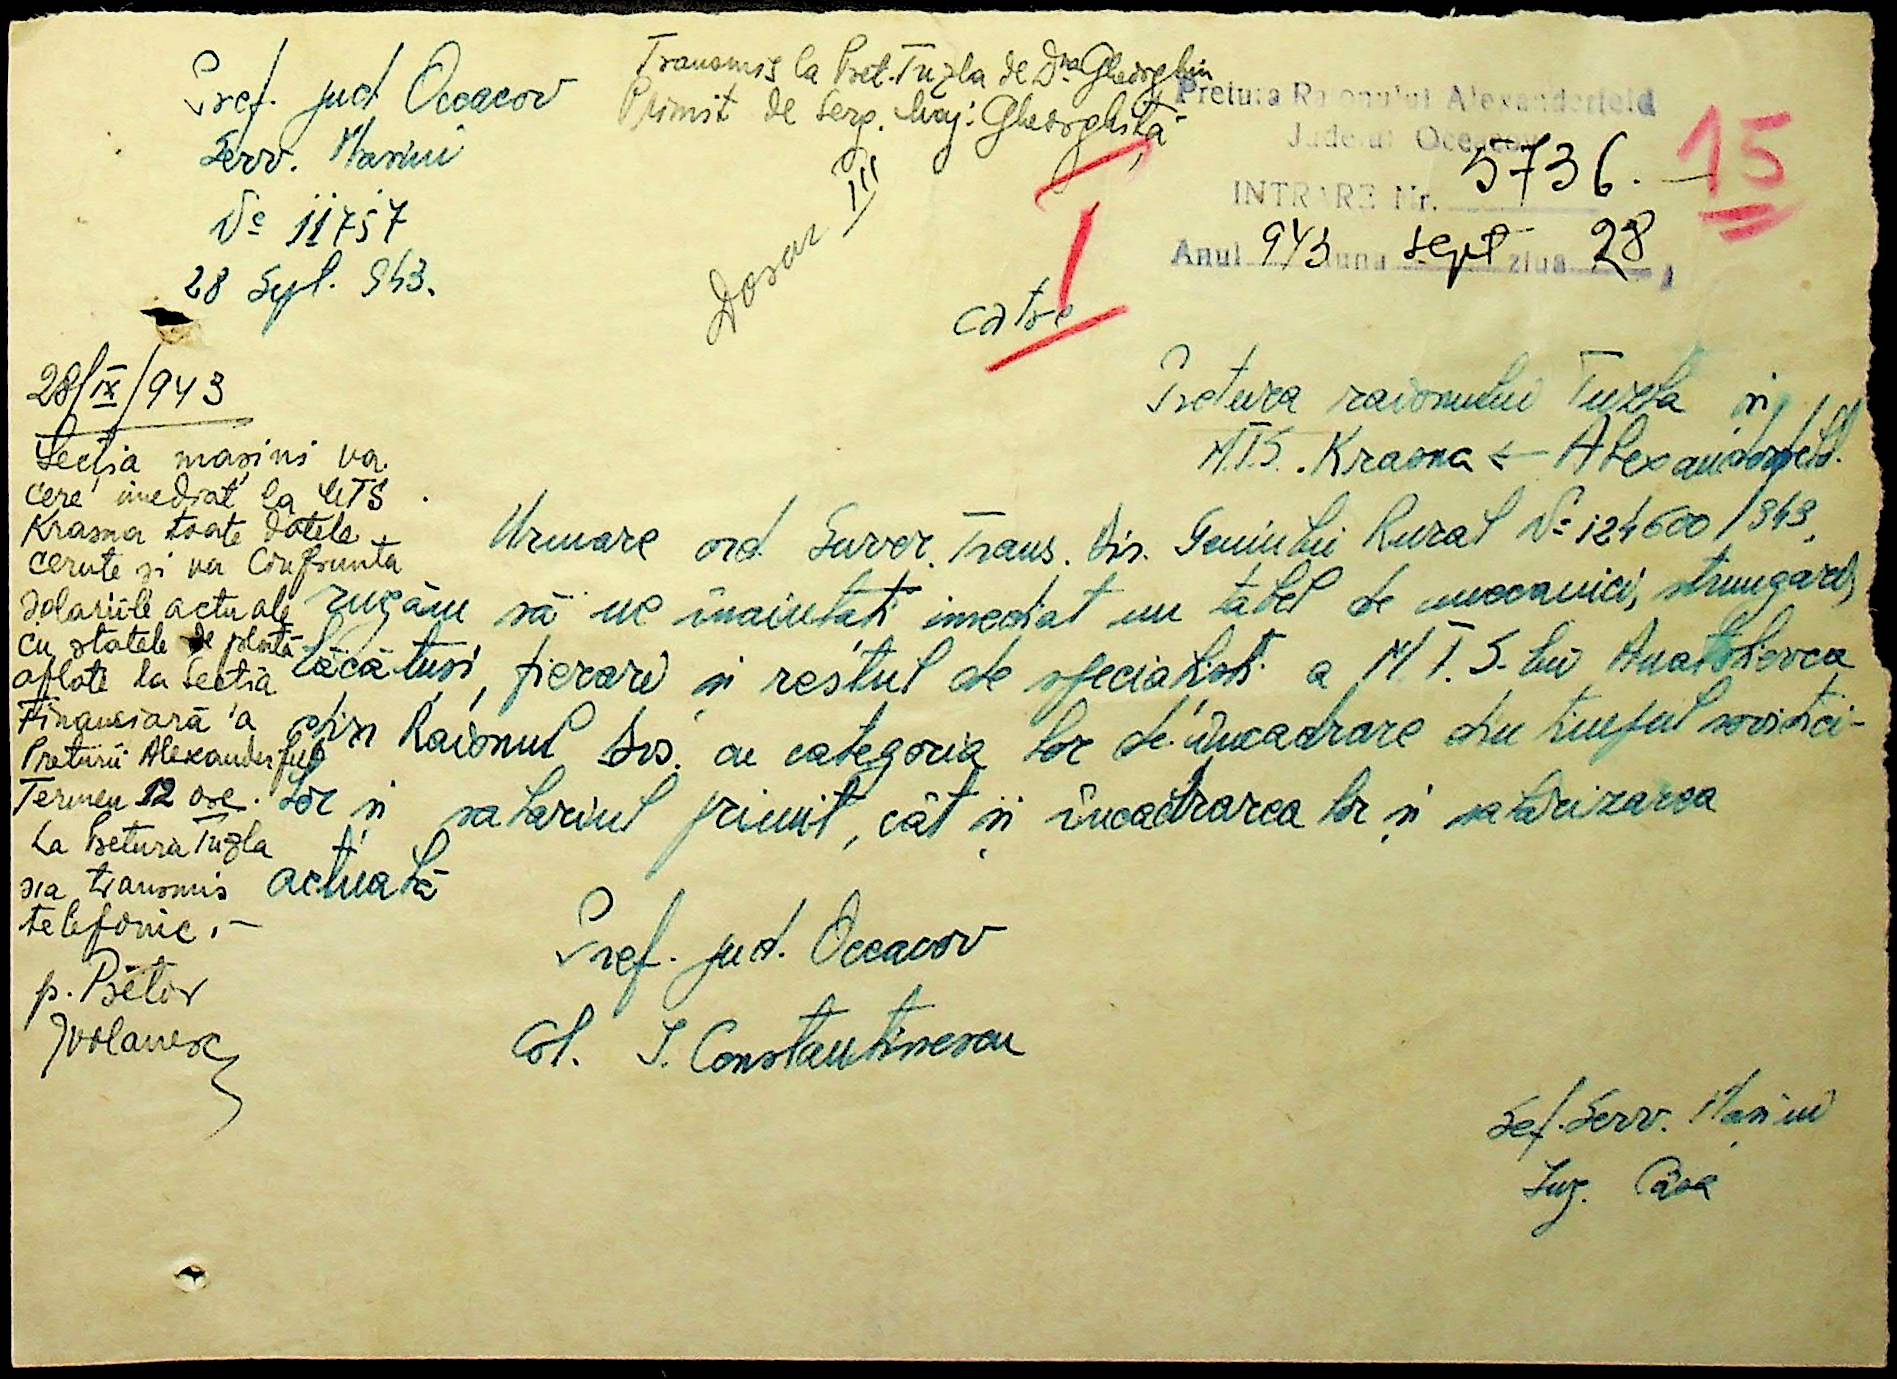 Pref. jud Oceacov
Serv. Masini
No 11757
28 Sept. 943.
Transmis la Pret. Tuzla de Dra Gheorghiu
Primit de Serg. Maj: Gheorghiță
Dosar III
Pretura Raionului Alexanderfeld
Judetul Oceacov
INTRARE Nr. 5736.
Anul 943 luna sept ziua 28
15
I
catre
Pretura raionului Tuzla și
M.T.S. Krasna ← Alexanderfeld.
Urmare ord. Guver. Trans. Dir. Geniului Rural No 124600/943,
rugăm să ne înaintați imediat un tabel de mecanici, strungari,
lăcătuși, fierari și restul de specialiști a M.T.S.-lui Anatolievca
din Raionul Dvs. cu categoria lor de încadrare din timpul sovietici-
lor și salariul primit, cât și încadrarea lor și salarizarea
actuală
Pref. jud. Oceacov
Col. I. Constantinescu
Șef. Serv. Mașini
Ing.
28/IX/943
Secția mașini va
cere imediat la MTS
Krasna toate datele
cerute și va confrunta
salariile actuale
cu statele de plată
aflate la Secția
Financiară a
Preturii Alexanderfeld
Termen 12 ore.
La Pretura Tuzla
s'a transmis
telefonic.-
p. Pretor